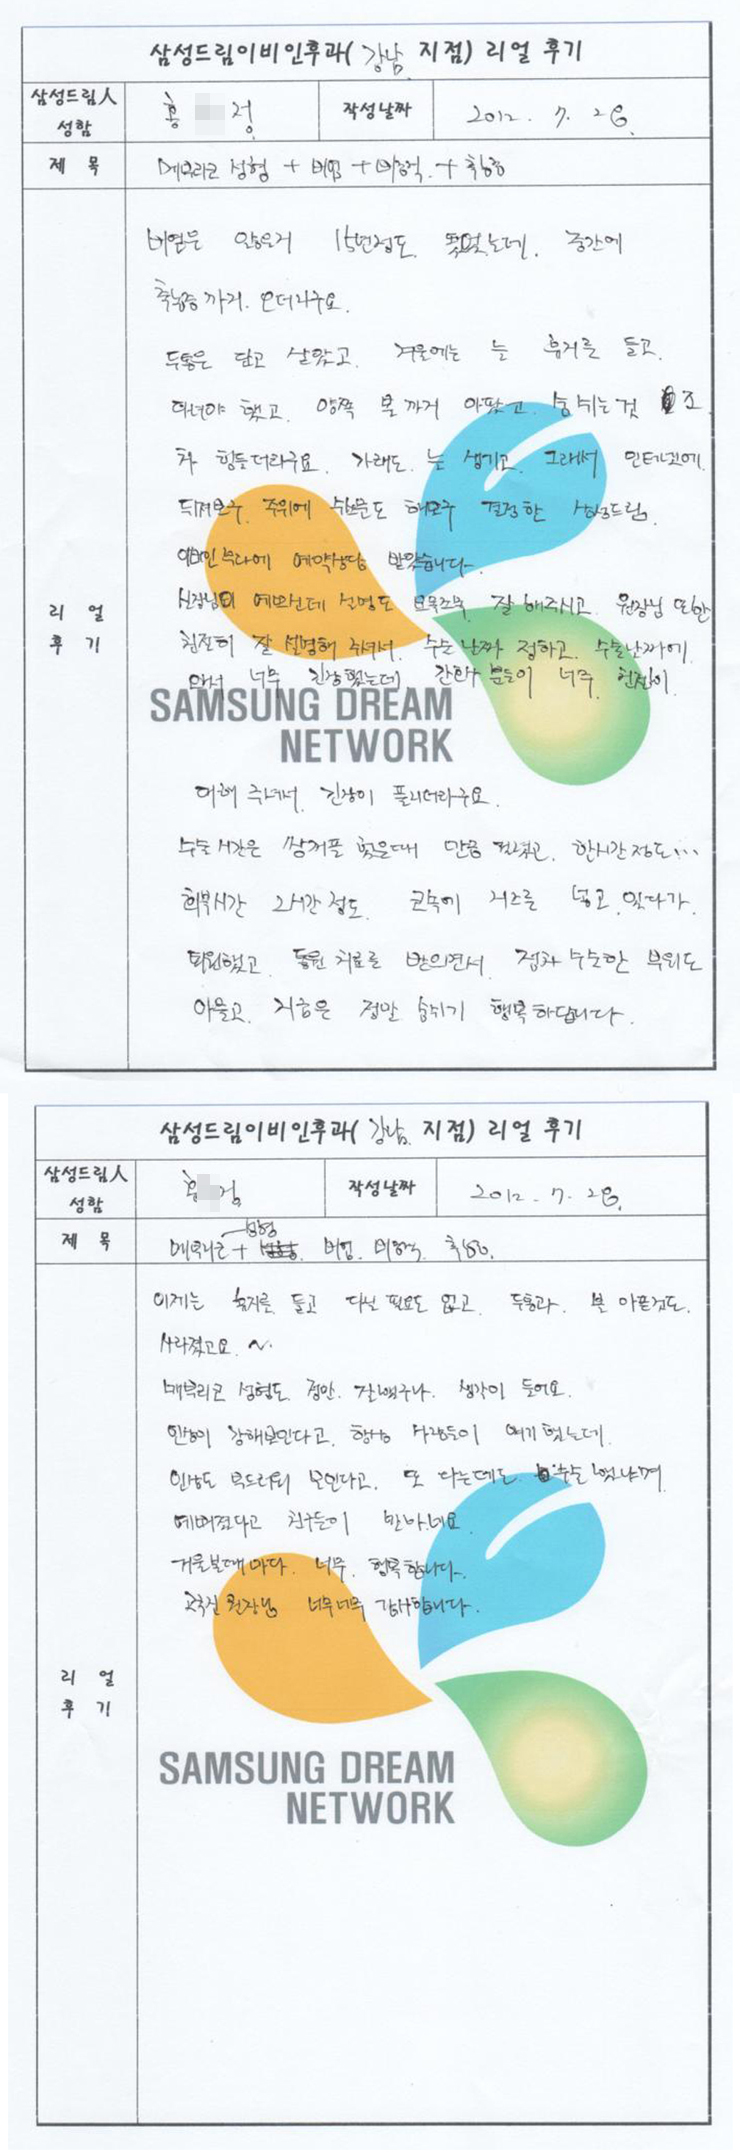 삼성드림이비인후과( 강남 지점) 리얼 후기
삼성드림人 성함
홍 정
작성날짜
2012. 7. 28.
제 목
메부리코 성형 + 비염 + 비중격 + 축농증
비염은 앓은거 15년정도 됐었는데. 중간에
축농증까지 오더라구요.
두통은 달고 살았고. 겨울에는 늘 휴지를 들고.
다녀야 했고. 양쪽 볼까지 아팠고. 숨쉬는것 조
차 힘들더라구요. 가래도. 늘 생기고. 그래서 인테넷에.
뒤져보구. 주위에 수소문도 해보구 결정한 삼성드림.
이비인후과에 예약상담 받았습니다.
실장님이 예쁘신데 설명도 조목조목 잘 해주시고. 원장님 또한
친절히 잘 설명해 주셔서. 수술 날짜 정하고. 수술날짜에.
와서 너무 긴장했는데 간호사 분들이 너무. 친절히.
리 얼
후 기
SAMSUNG DREAM
NETWORK
대해 주셔서. 긴장이 풀리더라구요.
수술시간은 쌍꺼플 했을때 만큼 편했고. 한시간정도...
회복시간 2시간정도. 코속에 거즈를 넣고. 있다가.
퇴원했고. 통원 치료를 받으면서. 점차 수술한 부위도
아물고. 지금은 정말 숨쉬기 행복하답니다.
삼성드림이비인후과( 강남 지점) 리얼 후기
삼성드림人 성함
홍 정
작성날짜
2012. 7. 28.
제 목
성형
메부리코 + 비염. 비중격. 축농증.
이제는 휴지를 들고 다닐 필요도 없고. 두통과. 볼 아픈것도.
사라졌고요. ~
메부리코 성형도. 정말. 잘했구나. 생각이 들어요.
인상이 강해보인다고. 항상 사람들이 얘기했는데.
인상도 부드러워 보인다고. 또 다른데도. 수술했냐며
예뻐졌다고 친구들이 난리네요
거울볼때마다. 너무. 행복합니다.
원장님 너무너무 감사합니다.
리 얼
후 기
SAMSUNG DREAM
NETWORK